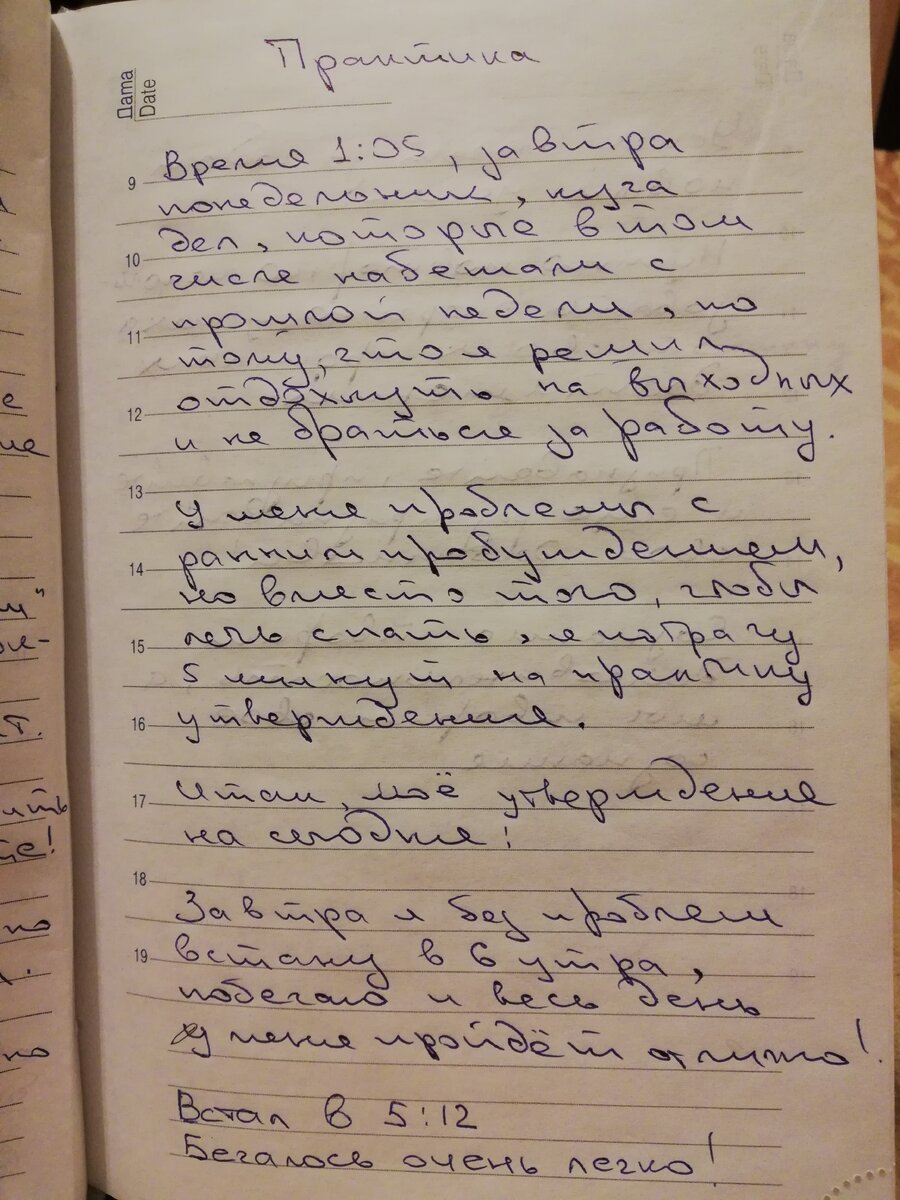 Практика
Дата
Date
9 Время 1:05, завтра
понедельник, куча
10 дел, которые в том
числе набежали с
11 прошлой недели, по
тому, что я решил
12 отдохнуть на выходных
и не браться за работу.
13 У меня проблемы с
14 ранним пробуждением,
но вместо того, чтобы
15 лечь спать, я потрачу
5 минут на практику
16 утверждения.
17 Итак, моё утверждение
на сегодня:
18
Завтра я без проблем
19 встану в 6 утра,
побегаю и весь день
у меня пройдёт отлично!
Встал в 5:12
Бегалось очень легко!
е
ие
"
т.
ить
це!
но
но